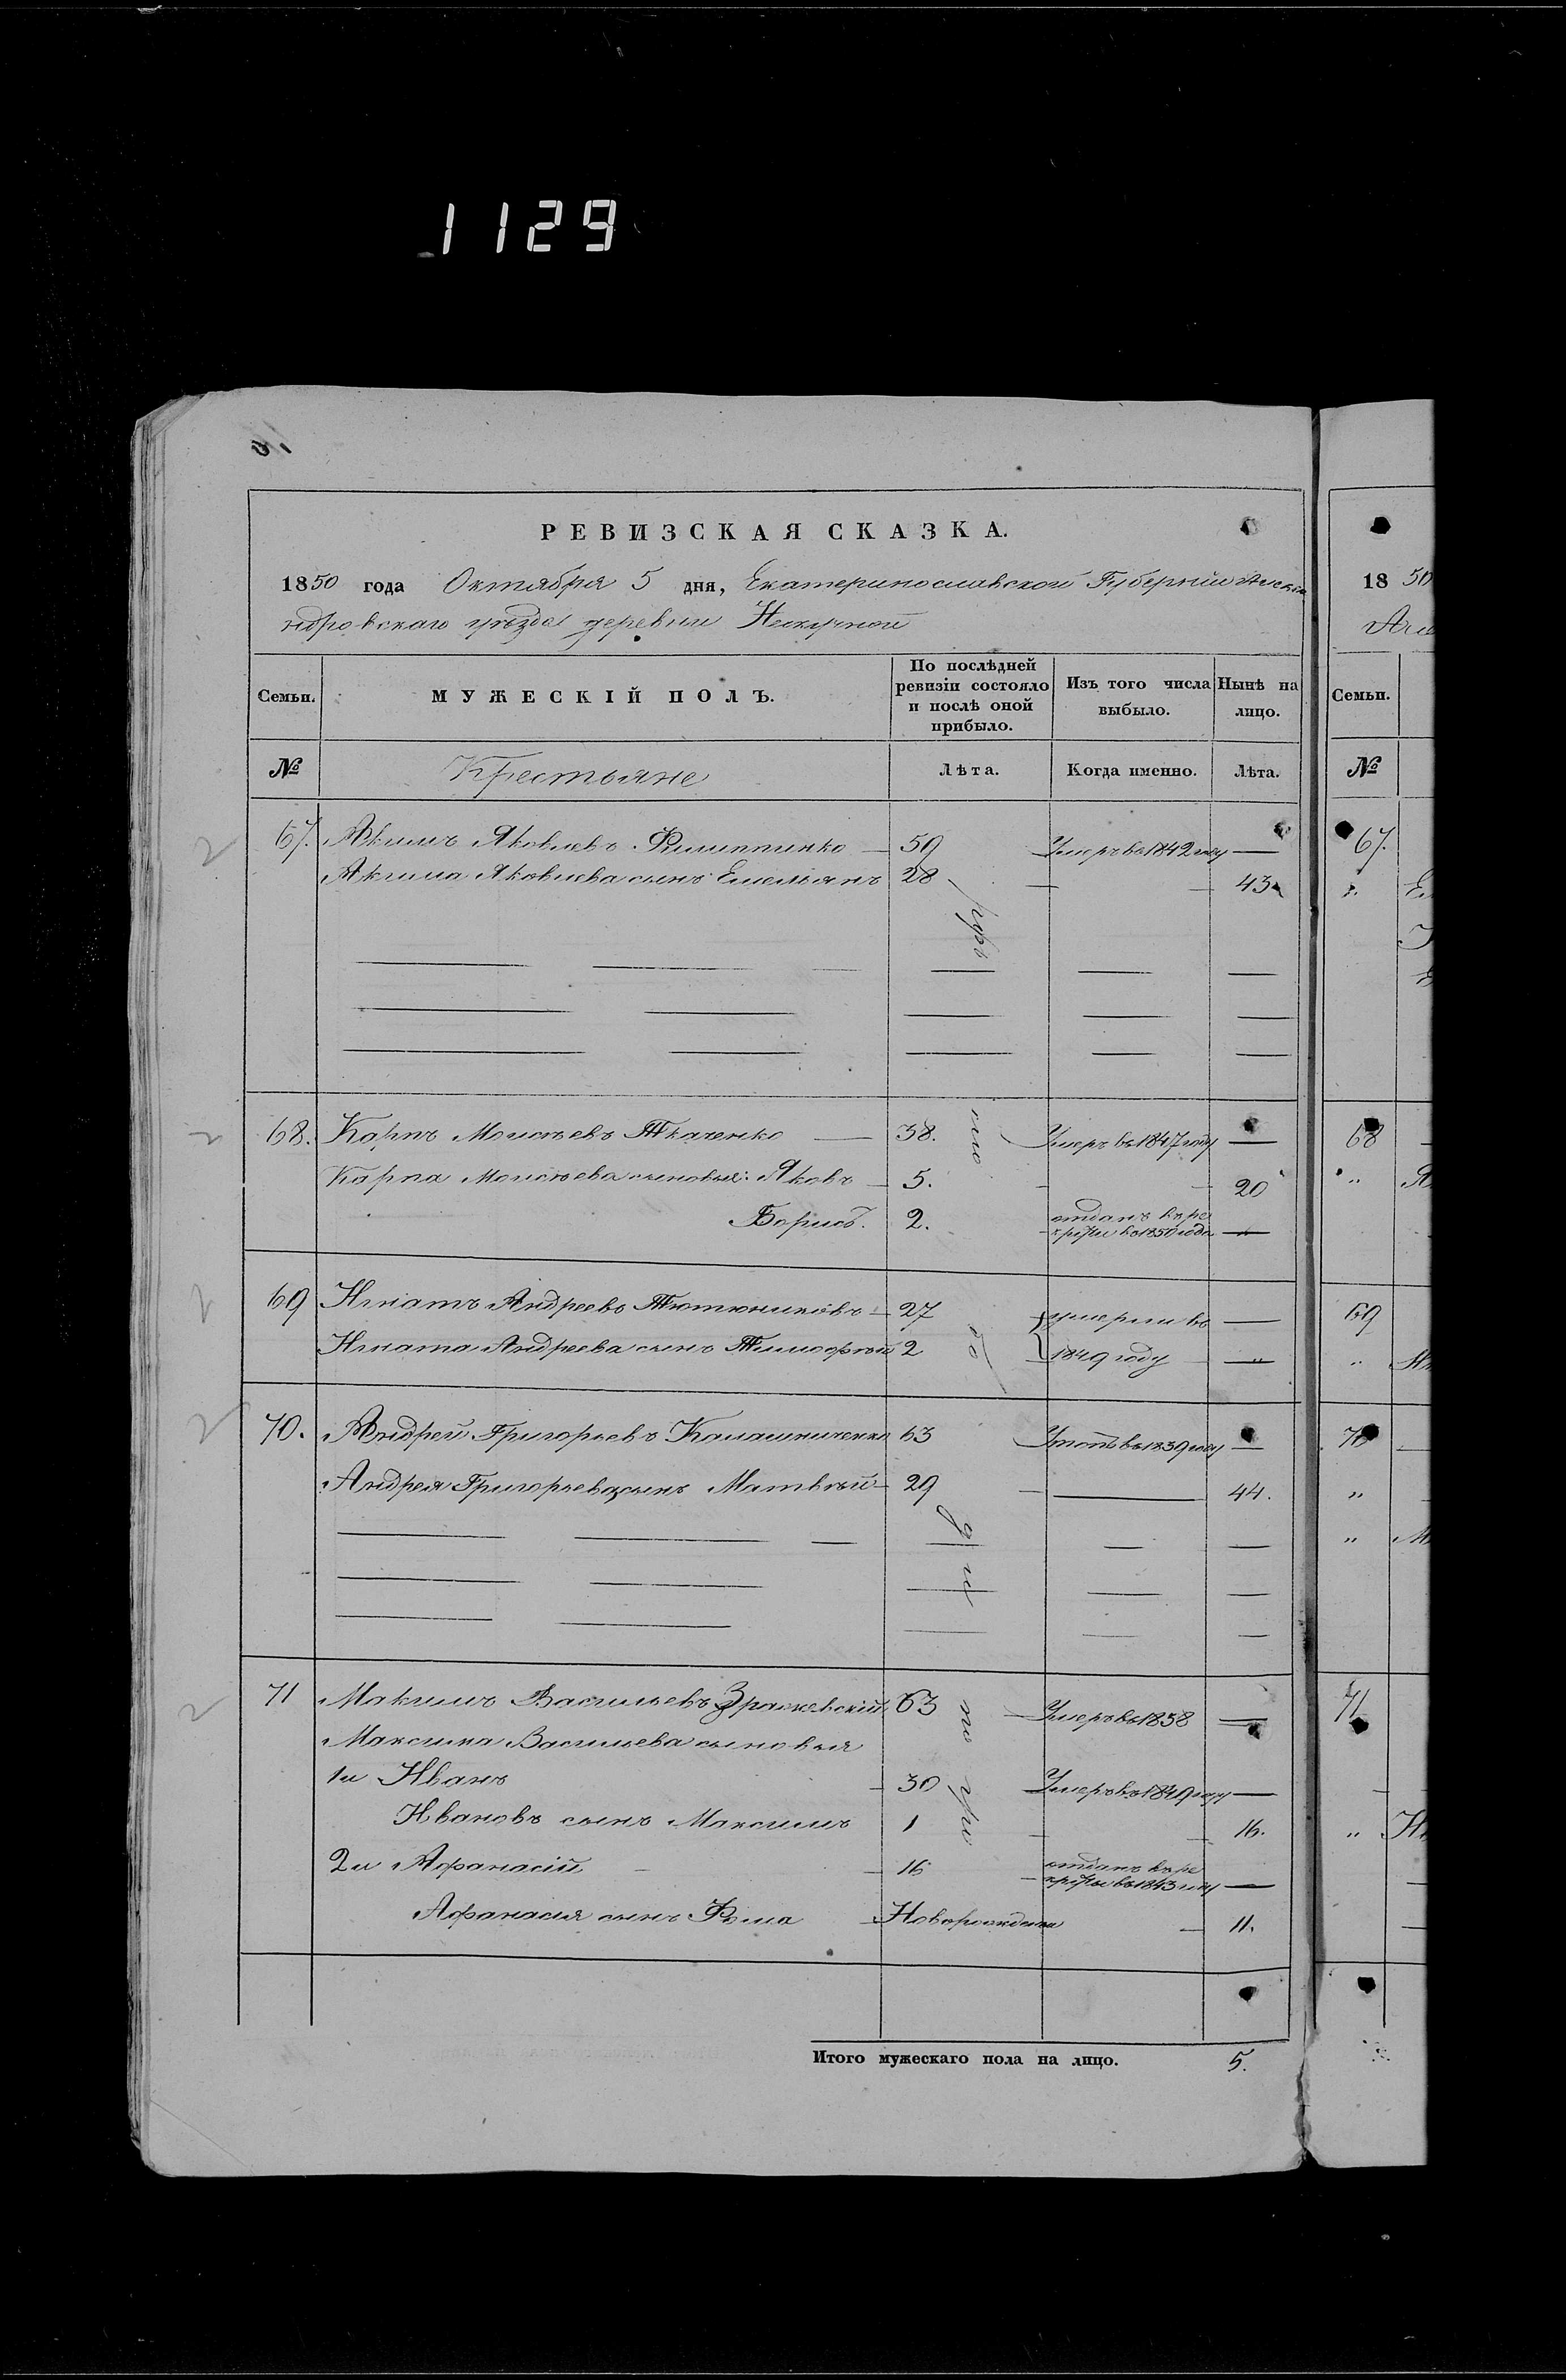 1129
РЕВИЗСКАЯ СКАЗКА.
1850 года Октября 5 дня, Екатеринославской Губерніи Алекса
ндровскаго уезда деревни Нескучной
Семьи. МУЖЕСКІЙ ПОЛЪ. По послѣдней ревизіи состояло и послѣ оной прибыло. Изъ того числа выбыло. Нынѣ на лицо.
№ Крестьяне Лѣта. Когда именно. Лѣта.
67. Акимъ Яковлевъ Филиппенко 59 Умеръ въ 1842 году
Акима Яковлева сынъ Емельянъ 28 43
68. Карпъ Моисѣевъ Ткаченко 38. Умеръ въ 1847 году
Карпа Моисѣева сыновья: Яковъ 5. 20
Борисъ. 2. отданъ въ ре
круты въ 1850 года
69 Игнатъ Андреевъ Тютюниковъ 27 умерли въ
Игната Андреева сынъ Тимофѣй 2 1849 году
70. Андрей Григорьевъ Калашниченко 63 1839 году
Андрея Григорьева сынъ Матвѣй 29 44.
71 Максимъ Васильевъ 63 Умеръ въ 1838
Максима Васильева сыновья
1й Иванъ 30 Умеръ въ 1849 году
Ивановъ сынъ Максимъ 1 16.
2й Афанасій 16 отданъ въ ре
круты въ 1843 году
Афанасія сынъ Фома Новорожденъ 11.
Итого мужескаго пола на лицо. 5.
18 50
Семьи.
№
67.
68
69
70
71